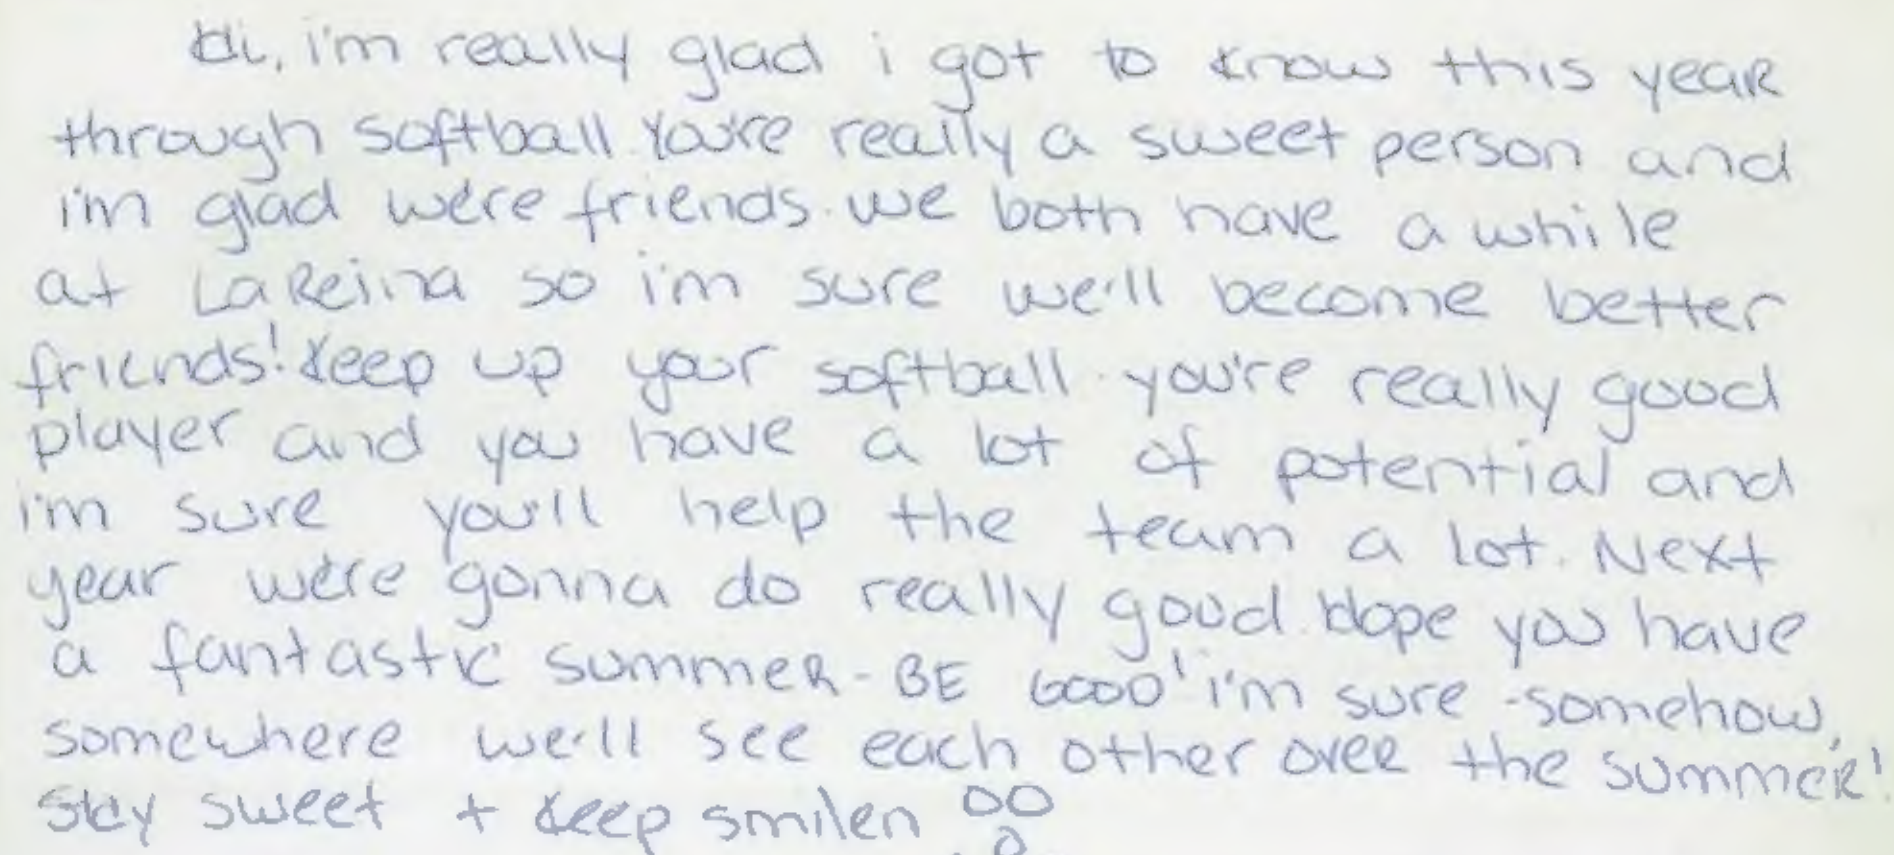 Hi, i'm really glad i got to know this year
through softball. You're really a sweet person and
i'm glad we're friends. we both have a while
at LaReina so i'm sure we'll become better
friends! Keep up your softball. you're really good
player and you have a lot of potential and
i'm sure you'll help the team a lot. Next
year we're gonna do really good. Hope you have
a fantastic summeR - BE GOOD! i'm sure - somehow,
somewhere we'll see each other oveR the summeR!
Stay sweet + keep smilen